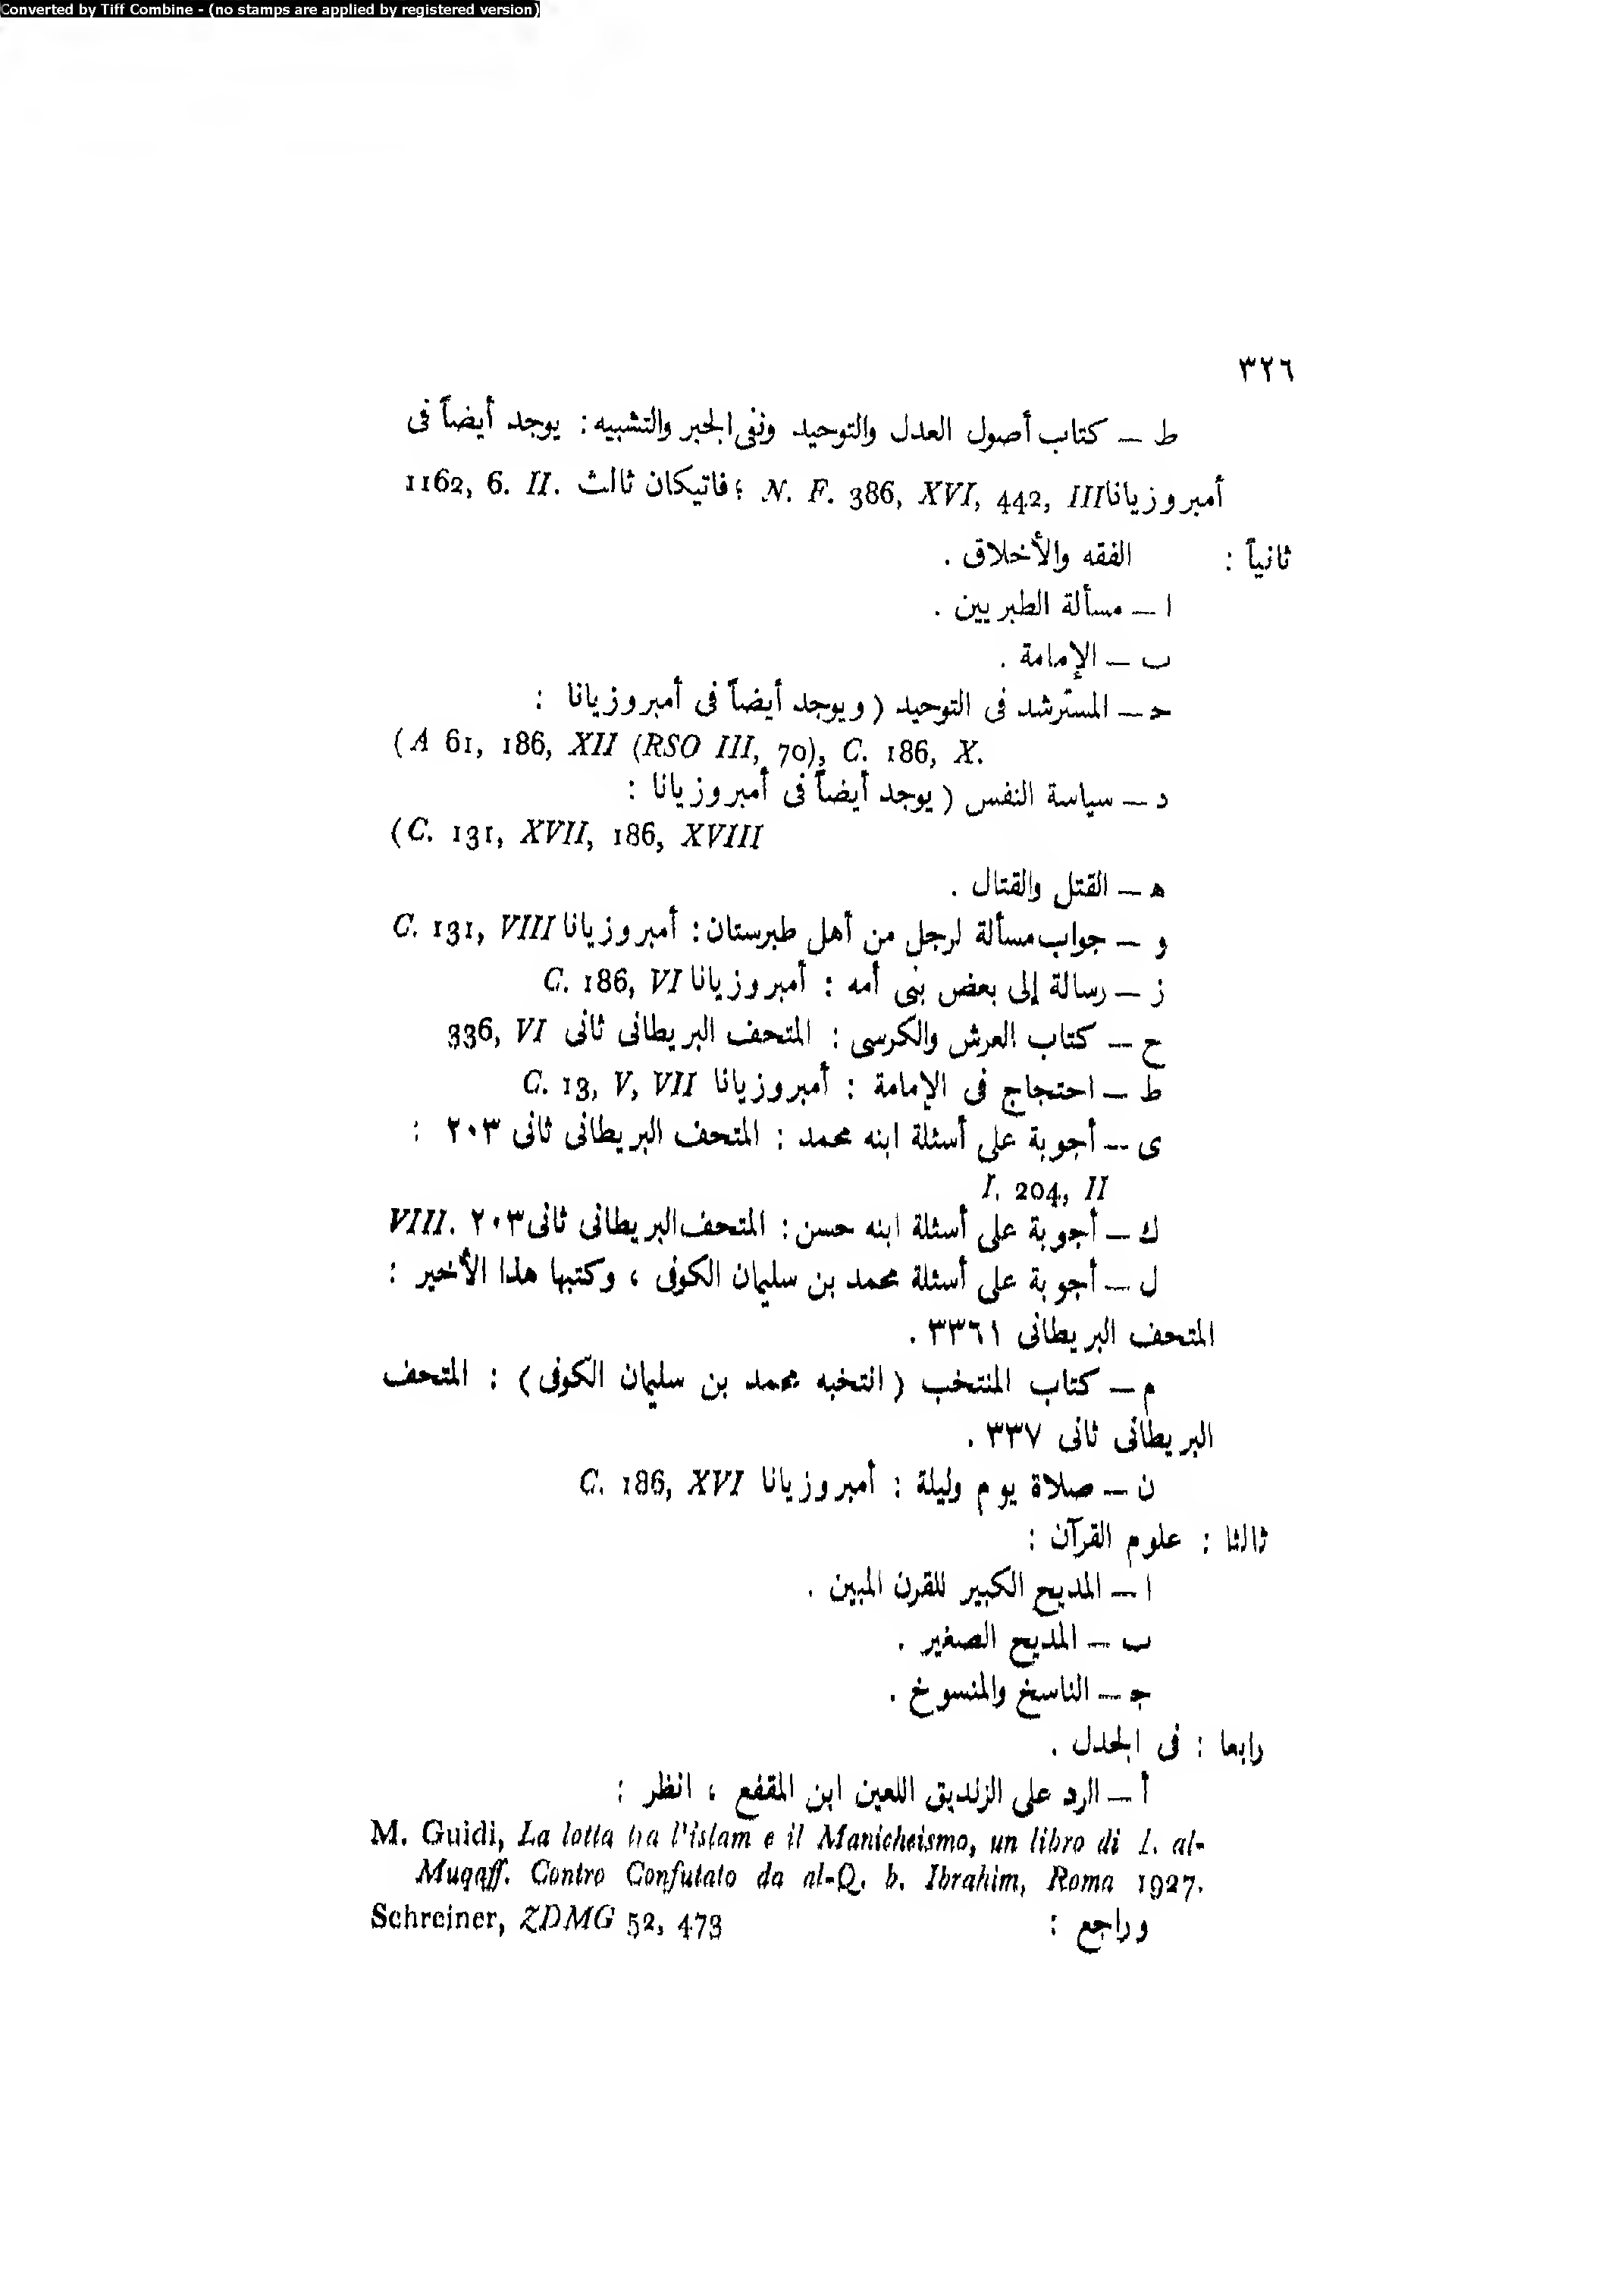 Converted by Tiff Combine - (no stamps are applied by registered version)
٣٢٦
ط — كتاب أصول العدل والتوحيد ونفى الجبر والتشبيه : يوجد أيضاً فى
أمبروزيانا N. F. 386, XVI, 442, III ؛ فاتيكان ثالث 1162, 6. II.
ثانياً : الفقه والأخلاق .
ا — مسألة الطبريين .
ب — الإمامة .
حـ — المسترشد فى التوحيد ( ويوجد أيضاً فى أمبروزيانا :
(A 61, 186, XII (RSO III, 70), C. 186, X.
د — سياسة النفس ( يوجد أيضاً فى أمبروزيانا :
(C. 131, XVII, 186, XVIII
هـ — القتل والقتال .
و — جواب مسألة لرجل من أهل طبرستان : أمبروزيانا C. 131, VIII
ز — رسالة إلى بعض بنى أمه : أمبروزيانا C. 186, VI
ح — كتاب العرش والكرسى : المتحف البريطانى ثانى 336, VI
ط — احتجاج فى الإمامة : أمبروزيانا C. 13, V, VII
ى — أجوبة على أسئلة ابنه محمد : المتحف البريطانى ثانى ٢٠٣ :
I. 204, II
ك — أجوبة على أسئلة ابنه حسن : المتحف البريطانى ثانى ٢٠٣ VIII.
ل — أجوبة على أسئلة محمد بن سليمان الكوفى ، وكتبها هذا الأخير :
المتحف البريطانى ٣٣٦١ .
م — كتاب المنتخب ( انتخبه محمد بن سليمان الكوفى ) : المتحف
البريطانى ثانى ٣٣٧ .
ن — صلاة يوم وليلة : أمبروزيانا C. 186, XVI
ثالثا : علوم القرآن :
ا — المديح الكبير للقرن المبين .
ب — المديح الصغير .
جـ — الناسخ والمنسوخ .
رابعا : فى الجدل .
أ — الرد على الزنديق اللعين ابن المقفع ، انظر :
M. Guidi, La lotta tra l'islam e il Manicheismo, un libro di I. al-
Muqaff. Contro Confutato da al-Q. b. Ibrahim, Roma 1927.
وراجع : Schreiner, ZDMG 52, 473